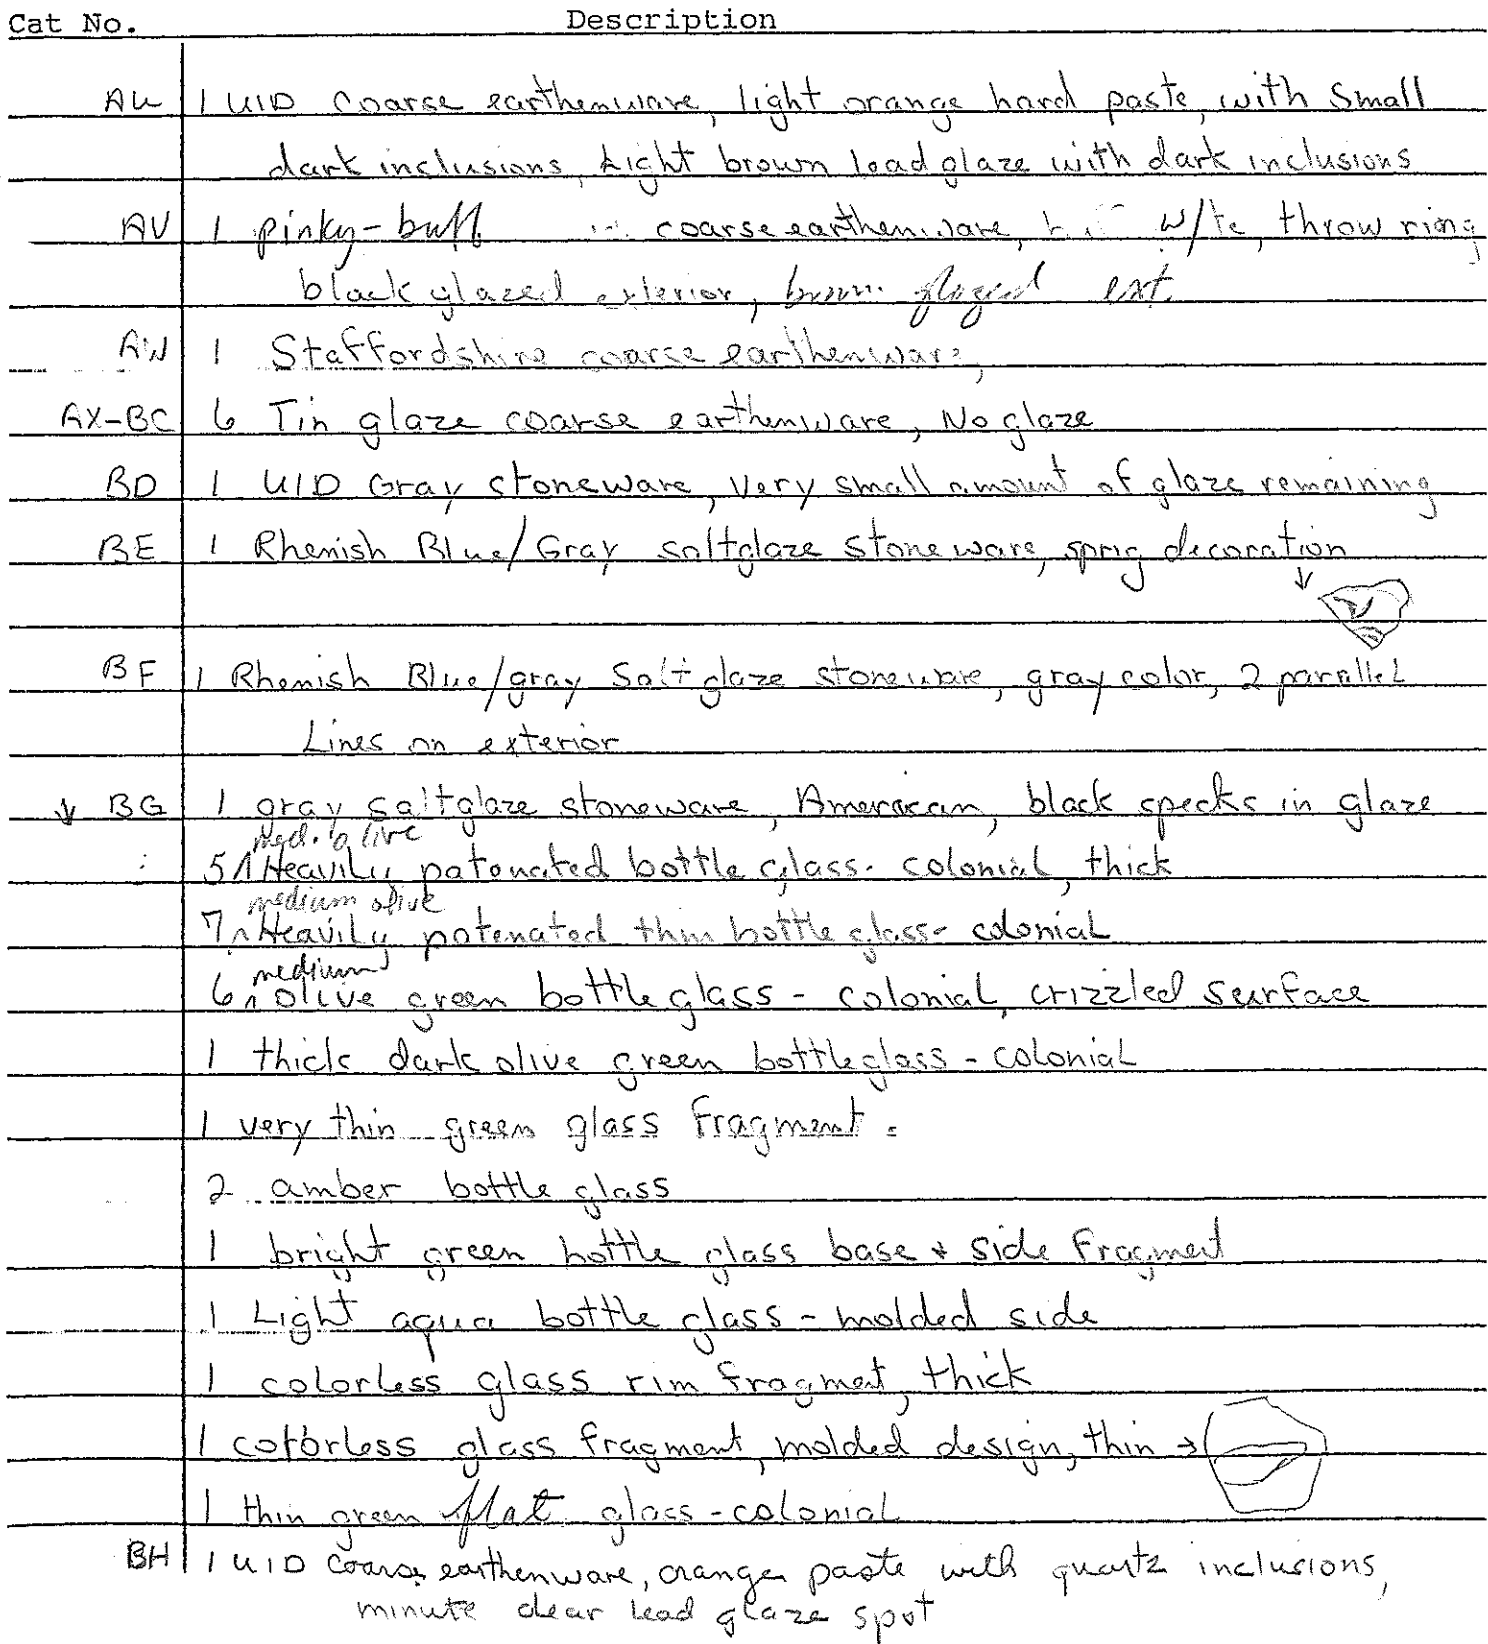 Cat No. Description
AU 1 UID coarse earthenware, light orange hard paste, with small
dark inclusions, Light brown lead glaze with dark inclusions
AV 1 pinky-buff coarse earthenware, throw ring
black glazed exterior, brown glazed ext.
AW 1 Staffordshire coarse earthenware,
AX-BC 6 Tin glaze coarse earthenware, No glaze
BD 1 UID Gray stoneware, very small amount of glaze remaining
BE 1 Rhenish Blue/Gray saltglaze stoneware, sprig decoration
↓
BF 1 Rhenish Blue/gray Salt glaze stoneware, gray color, 2 parallel
Lines on exterior
↓ BG 1 gray saltglaze stoneware, Ameracan, black specks in glaze
med. olive
5 ^ Heavily patonated bottle glass - colonial, thick
medium olive
7 ^ Heavily potenated thin bottle glass - colonial
medium
6 ^ olive green bottle glass - colonial, crizzled surface
1 thick dark olive green bottle glass - colonial
1 very thin green glass fragment -
2 amber bottle glass
1 bright green bottle glass base + side fragment
1 Light aqua bottle glass - molded side
1 colorless glass rim fragment, thick
1 colorless glass fragment, molded design, thin →
1 thin green flat glass - colonial
BH 1 UID coarse earthenware, orange paste with quartz inclusions,
minute clear lead glaze spot